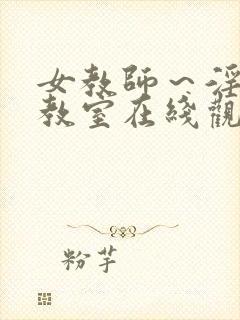 女教師～淫
教室在綫觀
粉芋